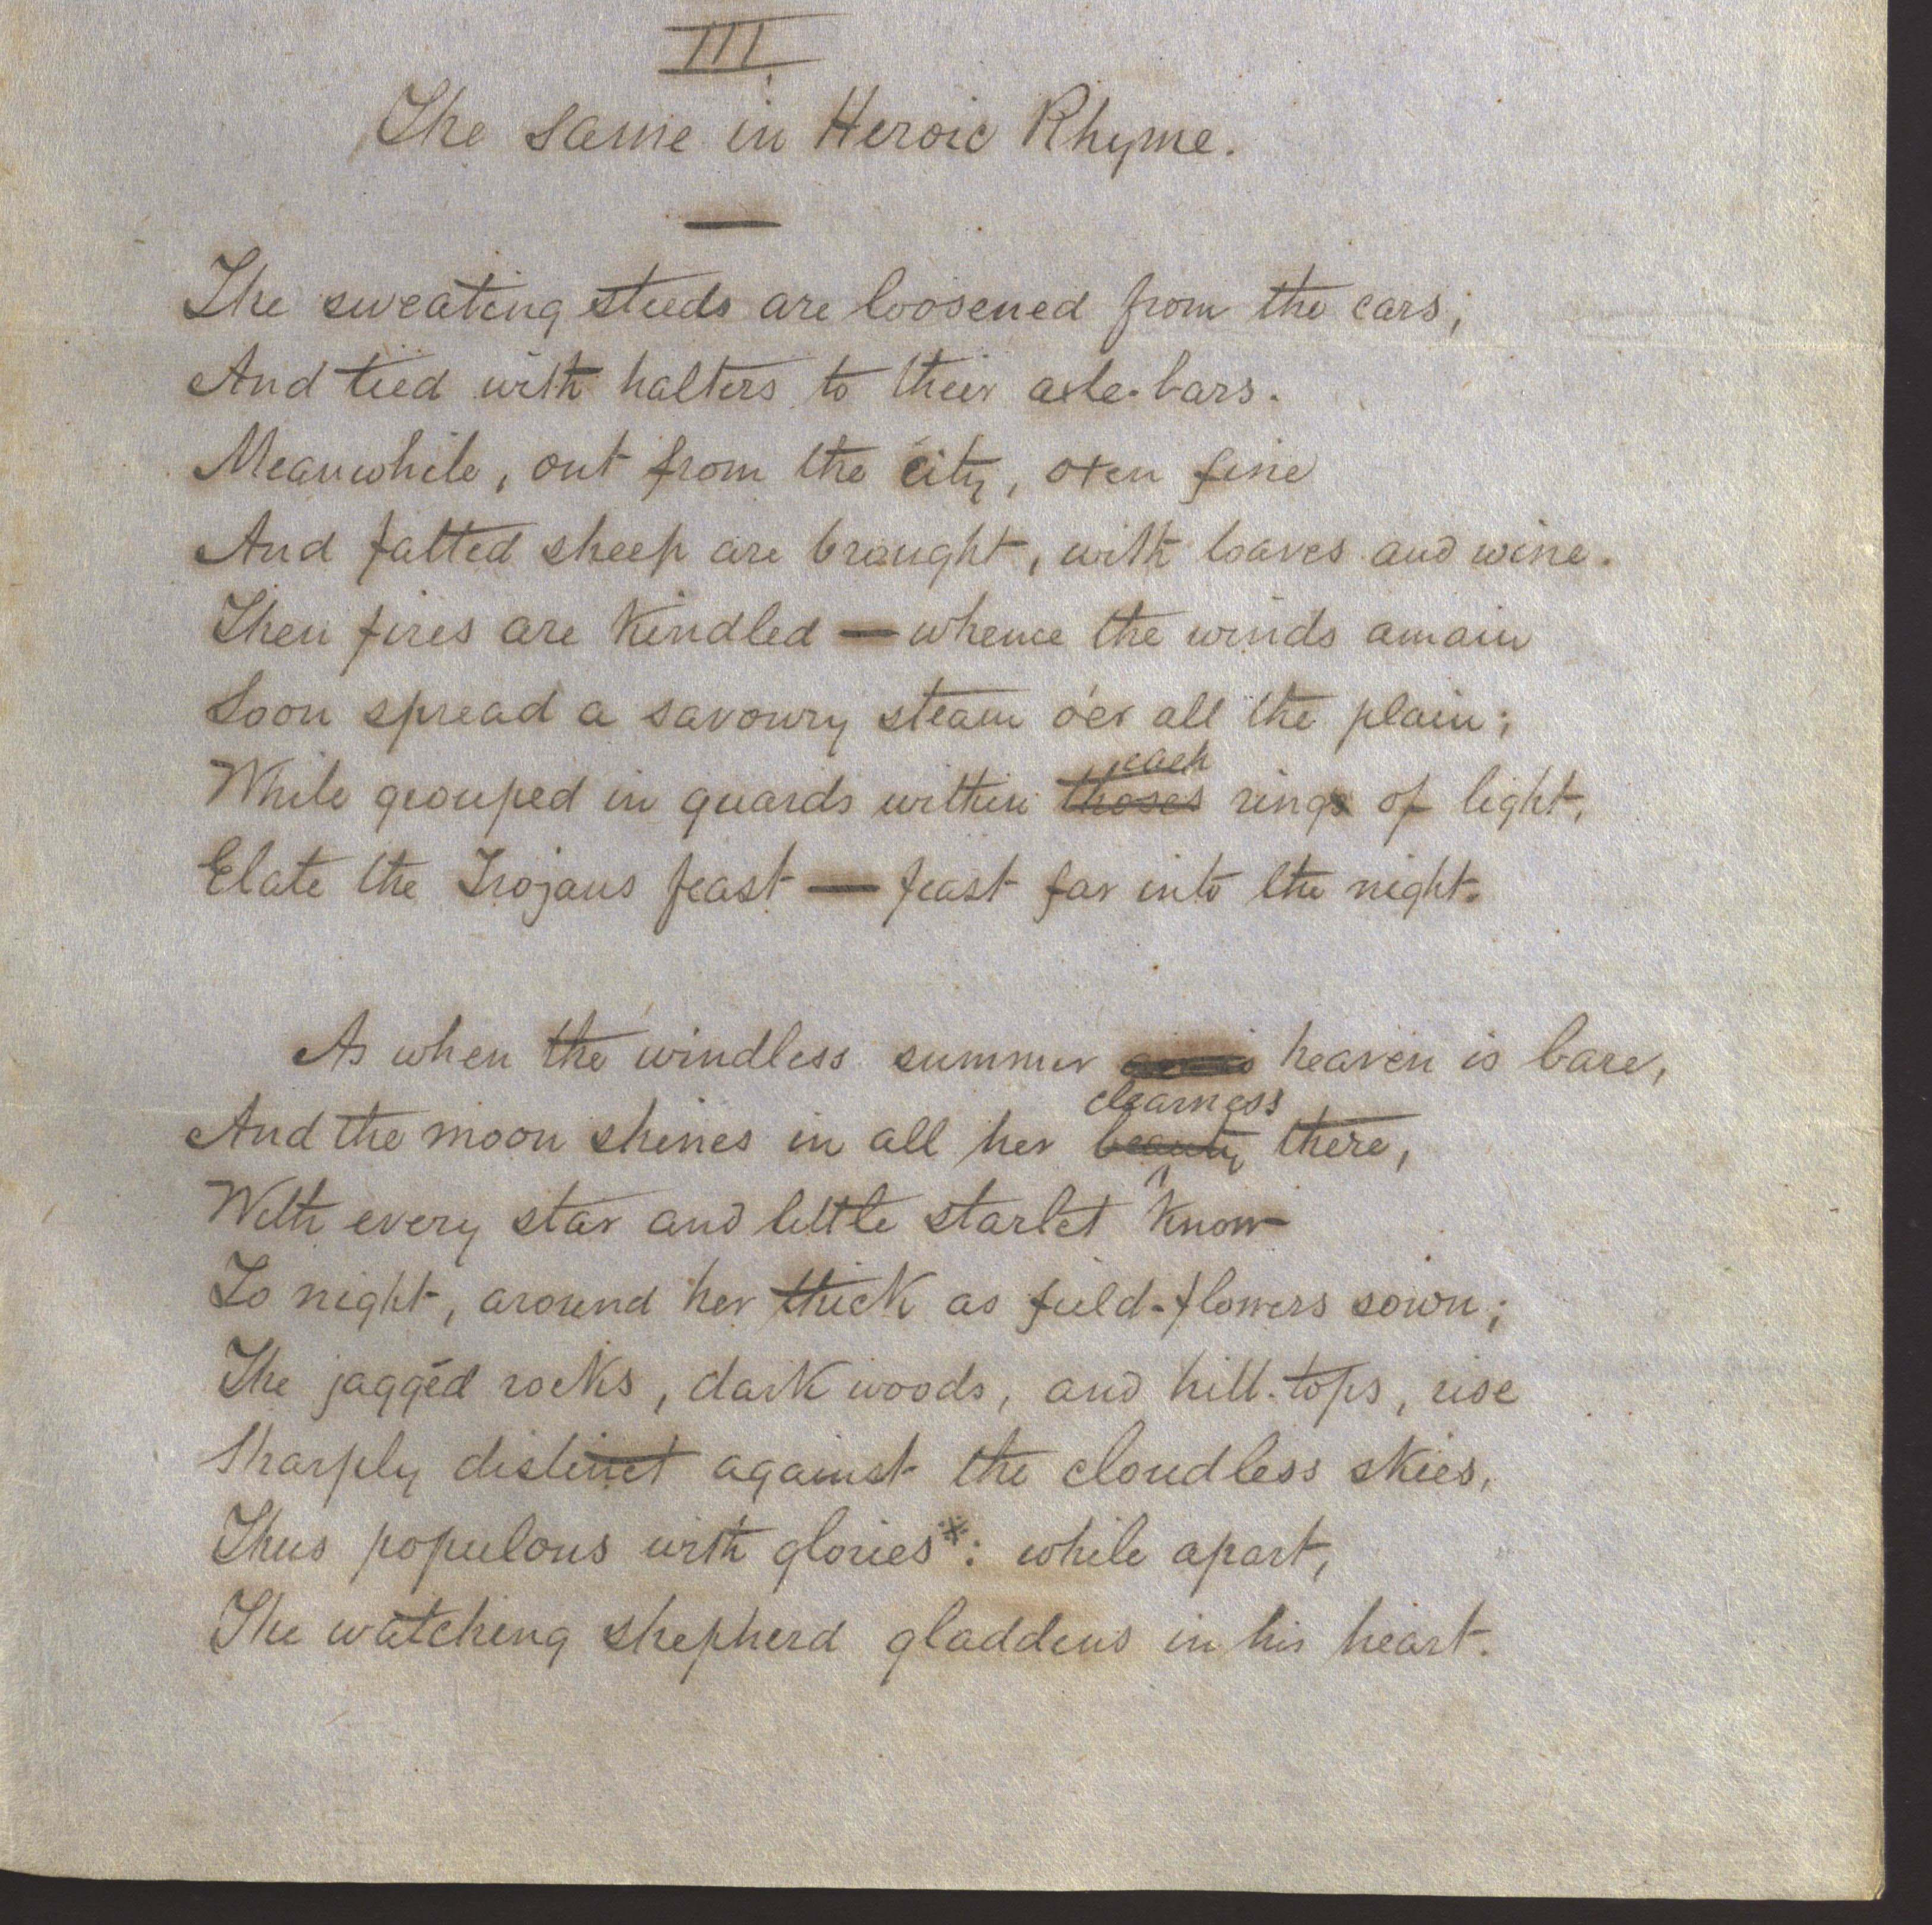 III
The same in Heroic Rhyme.
The sweating steeds are loosened from the cars,
And tied with halters to their axle-bars.
Meanwhile, out from the city, oxen fine
And fatted sheep are brought, with loaves and wine.
Then fires are kindled — whence the winds amain
Soon spread a savoury steam o'er all the plain;
each
While grouped in guards within those rings of light,
Elate the Trojans feast — feast far into the night.
As when the windless summer heaven is bare,
clearness
And the moon shines in all her beauty there,
With every star and little starlet known
To night, around her thick as field-flowers sown;
The jaggéd rocks, dark woods, and hill-tops, rise
Sharply distinct against the cloudless skies,
Thus populous with glories*: while apart,
The watching shepherd gladdens in his heart.